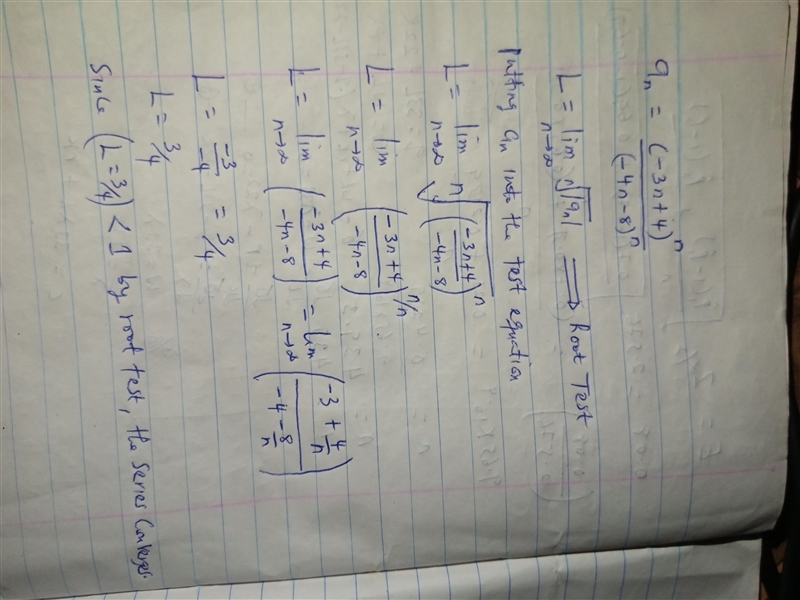 a_n = (-3n+4)^n / (-4n-8)^n
L = lim n→∞ n√|a_n| ⟹ Root Test
Putting a_n into the test equation
L = lim n→∞ n√((-3n+4 / -4n-8)^n)
L = lim n→∞ (-3n+4 / -4n-8)^n/n
L = lim n→∞ (-3n+4 / -4n-8) = lim n→∞ (-3 + 4/n / -4 - 8/n)
L = -3/-4 = 3/4
L = 3/4
Since (L = 3/4) < 1 by root test, the series Converges.